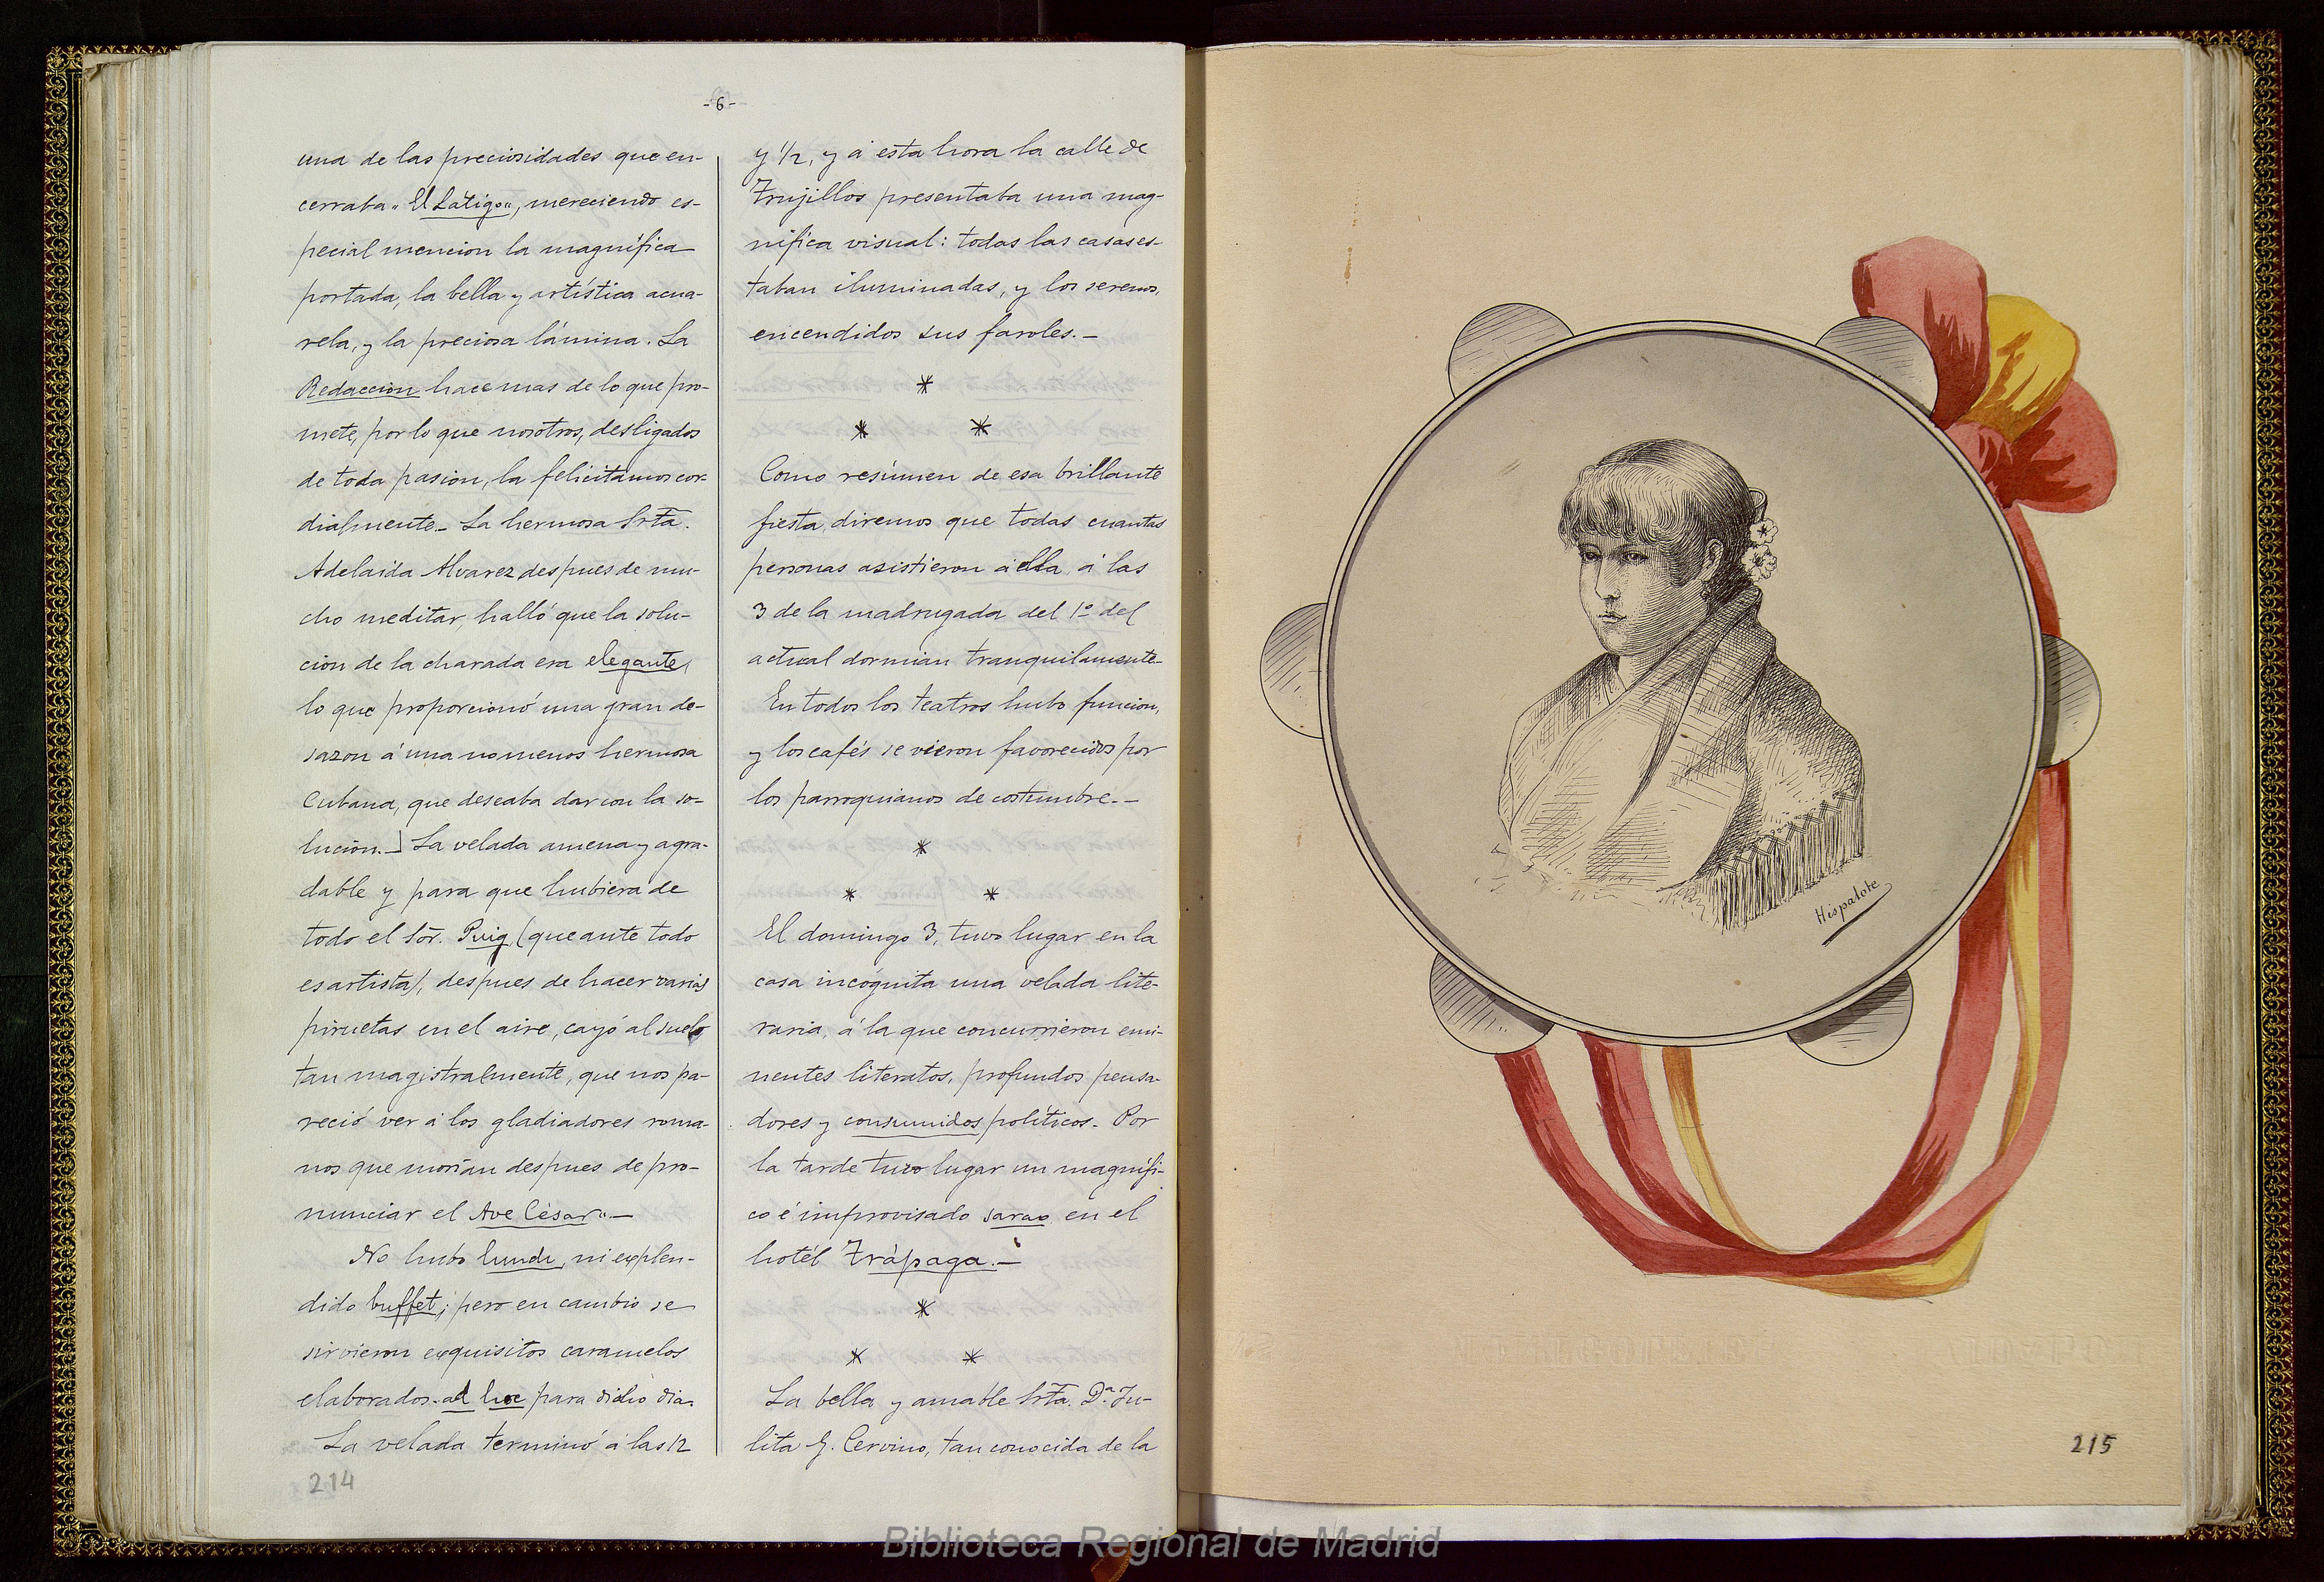 -6-
una de las preciosidades que en-
cerraba "El Látigo", mereciendo es-
pecial mencion la magnífica
portada, la bella y artística acua-
rela, y la preciosa lámina. La
Redaccion hace mas de lo que pro-
mete, por lo que nosotros, desligados
de toda pasion, la felicitamos cor-
dialmente._ La hermosa Srta.
Adelaida Alvarez despues de mu-
cho meditar, halló que la solu-
cion de la charada era elegante,
lo que proporcionó una gran de-
sazon á una no menos hermosa
Cubana, que deseaba dar con la so-
lucion._] La velada amena y agra-
dable y para que hubiera de
todo el Sor. Puig, (que ante todo
es artista), despues de hacer varias
piruetas en el aire, cayó al suelo
tan magistralmente, que nos pa-
reció ver á los gladiadores roma-
nos que morian despues de pro-
nunciar el Ave César"._
No hubo lunch, ni esplen-
dido buffet; pero en cambio se
sirvieron exquisitos caramelos
elaborados ad hoc para dicho dia.
La velada terminó á las 12
214
y 1/2, y á esta hora la calle de
Trujillos presentaba una mag-
nífica visual: todas las casas es-
taban iluminadas, y los serenos,
encendidos sus faroles._
*
* *
Como resúmen de esa brillante
fiesta, diremos que todas cuantas
personas asistieron á ella, á las
3 de la madrugada del 1º del
actual dormian tranquilamente._
En todos los teatros hubo funcion,
y los cafés se vieron favorecidos por
los parroquianos de costumbre._
*
* *
El domingo 3, tuvo lugar en la
casa incógnita una velada lite-
raria, á la que concurrieron emi-
nentes literatos, profundos pensa-
dores y consumidos políticos. Por
la tarde tuvo lugar un magnífi-
co é improvisado sarao en el
hotél Trápaga._
*
* *
La bella y amable Srta. Dª. Ju-
lita G. Cervino, tan conocida de la
Hispalote
215
Biblioteca Regional de Madrid